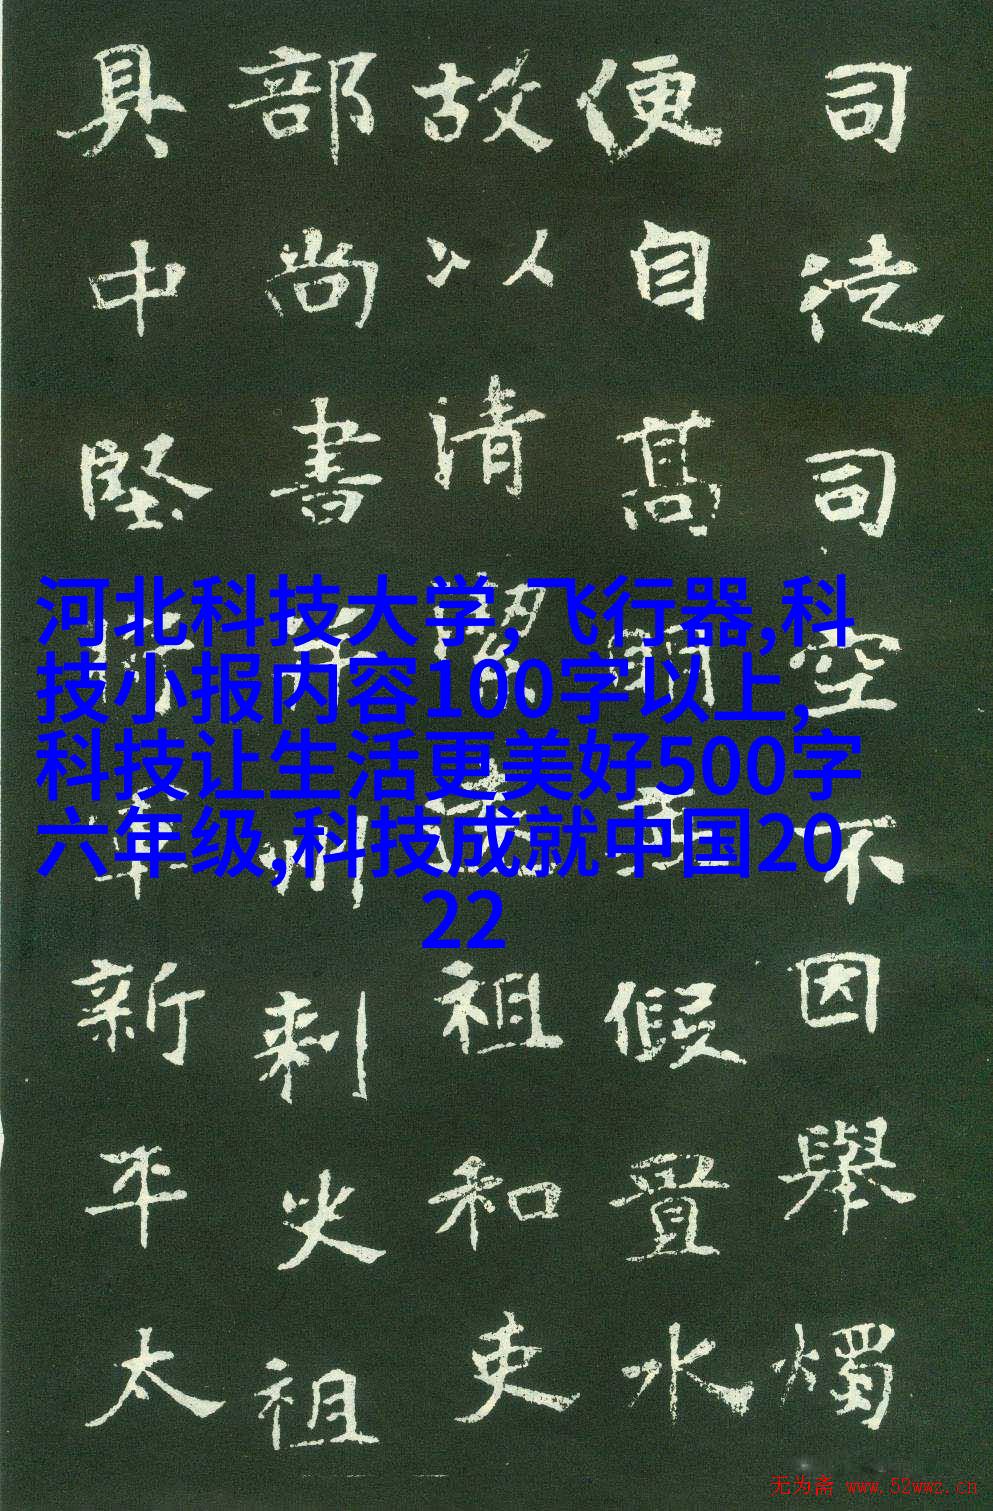 司徒司空不因舉燭
便自高明无假置水
故以清絜祖和吏
部尚書并州刺史祖
具中堅将軍新平太
河北科技大学,飞行器,科
技小报内容100字以上,
科技让生活更美好500字
六年级,科技成就中国20
22
无为斋 www.52wwz.cn